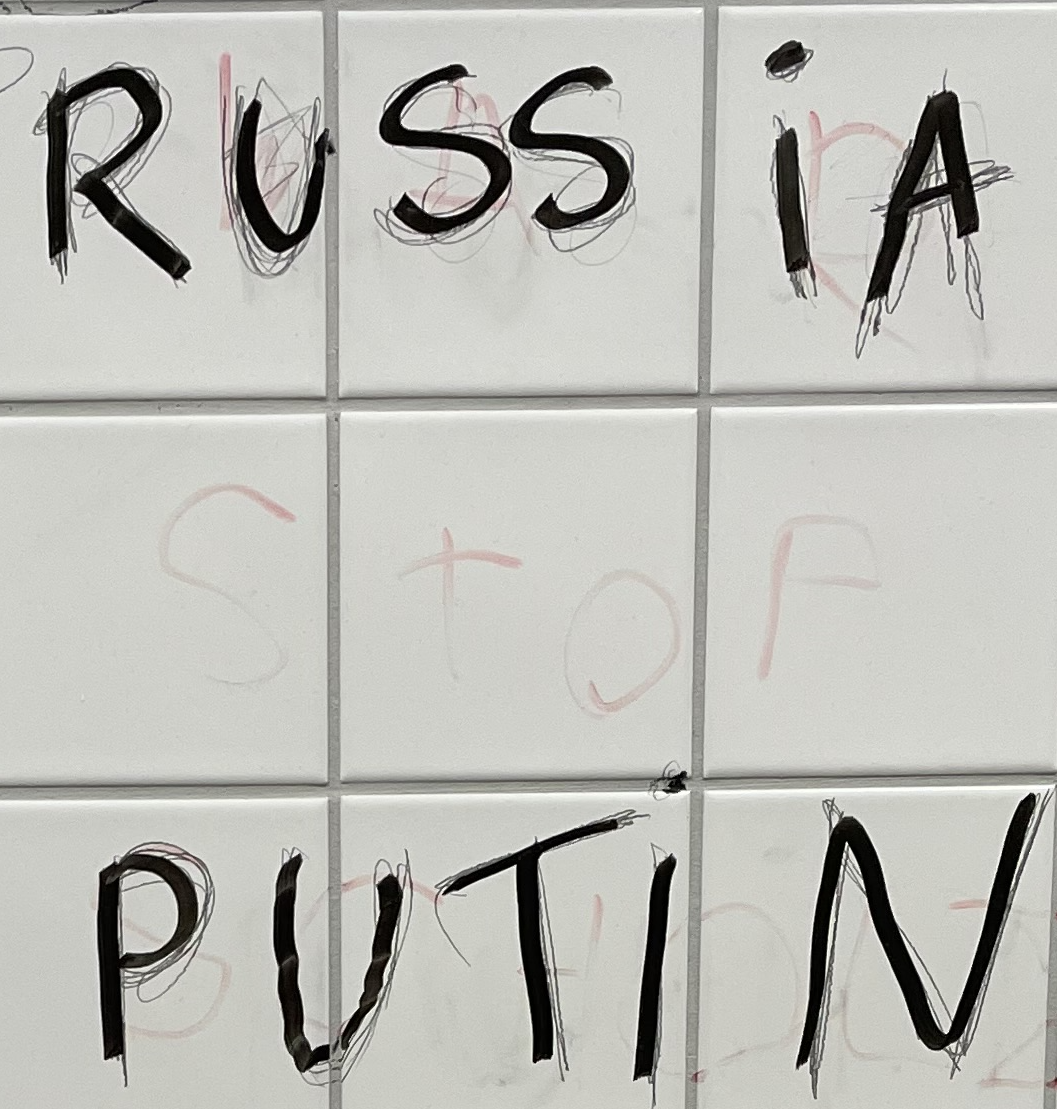 RUSSiA
StoP
PUTIN